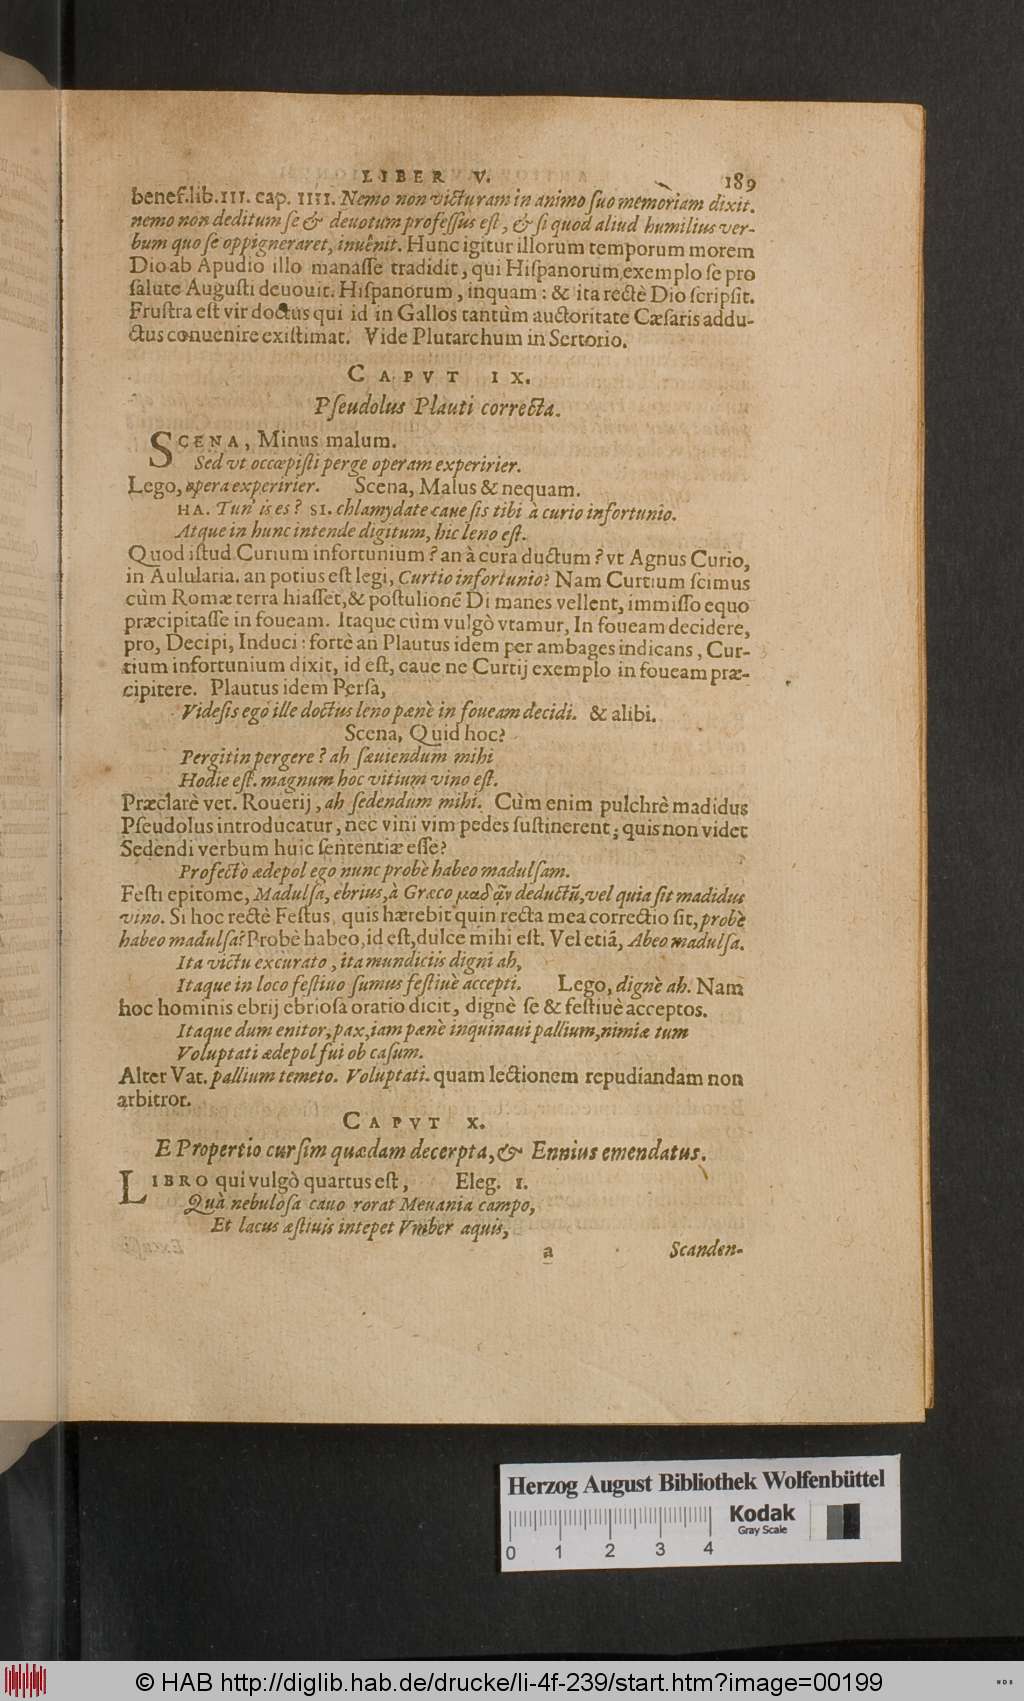 LIBER V. 189
benef. lib. III. cap. IIII. Nemo non victuram in animo ſuo memoriam dixit.
nemo non deditum ſe & deuotum profeſſus eſt, & ſi quod aliud humilius ver-
bum quo ſe oppigneraret, inuênit. Hunc igitur illorum temporum morem
Dio ab Apudio illo manaſſe tradidit, qui Hiſpanorum exemplo ſe pro
ſalute Auguſti deuouit. Hiſpanorum, inquam: & ita rectè Dio ſcripſit.
Fruſtra eſt vir doctus qui id in Gallos tantùm auctoritate Cæſaris addu-
ctus conuenire exiſtimat. Vide Plutarchum in Sertorio.
CAPVT IX.
Pſeudolus Plauti correcta.
SCENA, Minus malum.
Sed vt occœpiſti perge operam experirier.
Lego, opera experirier. Scena, Malus & nequam.
HA. Tun' is es? SI. chlamydate caue ſis tibi à curio infortunio.
Atque in hunc intende digitum, hic leno eſt.
Quod iſtud Curium infortunium? an à cura ductum? vt Agnus Curio,
in Aulularia. an potius eſt legi, Curtio infortunio? Nam Curtium ſcimus
cùm Romæ terra hiaſſet, & poſtulionē Di manes vellent, immiſſo equo
præcipitaſſe in foueam. Itaque cùm vulgò vtamur, In foueam decidere,
pro, Decipi, Induci: fortè an Plautus idem per ambages indicans, Cur-
tium infortunium dixit, id eſt, caue ne Curtij exemplo in foueam præ-
cipitere. Plautus idem Perſa,
Videſis ego ille doctus leno pænè in foueam decidi. & alibi.
Scena, Quid hoc?
Pergitin pergere? ah ſæuiendum mihi
Hodie eſt. magnum hoc vitium vino eſt.
Præclarè vet. Rouerij, ah ſedendum mihi. Cùm enim pulchrè madidus
Pſeudolus introducatur, nec vini vim pedes ſuſtinerent; quis non videt
Sedendi verbum huic ſententiæ eſſe?
Profectò ædepol ego nunc probè habeo madulſam.
Feſti epitome, Madulſa, ebrius, à Græco μαδᾷν deductū, vel quia ſit madidus
vino. Si hoc rectè Feſtus, quis hærebit quin recta mea correctio ſit, probè
habeo madulſa? Probè habeo, id eſt, dulce mihi eſt. Vel etiā, Abeo madulſa.
Ita victu excurato, ita mundiciis digni ah,
Itaque in loco feſtiuo ſumus feſtiuè accepti. Lego, dignè ah. Nam
hoc hominis ebrij ebrioſa oratio dicit, dignè ſe & feſtiuè acceptos.
Itaque dum enitor, pax, iam pænè inquinaui pallium, nimiæ tum
Voluptati ædepol fui ob caſum.
Alter Vat. pallium temeto. Voluptati. quam lectionem repudiandam non
arbitror.
CAPVT X.
E Propertio curſim quædam decerpta, & Ennius emendatus.
LIBRO qui vulgò quartus eſt, Eleg. I.
Quà nebuloſa cauo rorat Meuania campo,
Et lacus æſtiuis intepet Vmber aquis,
a Scanden-
Herzog August Bibliothek Wolfenbüttel
Kodak
Gray Scale
0 1 2 3 4
© HAB http://diglib.hab.de/drucke/li-4f-239/start.htm?image=00199